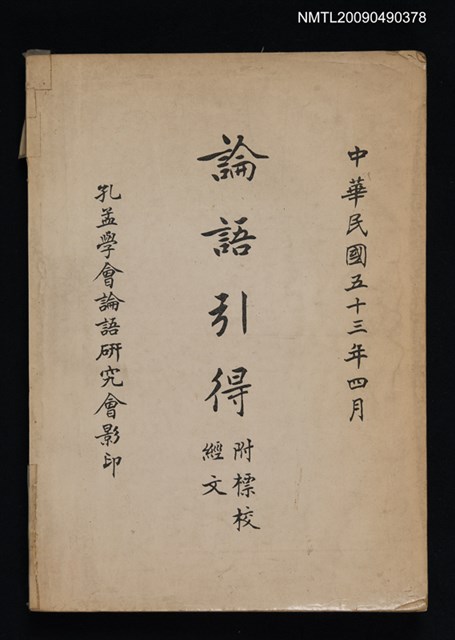 NMTL20090490378
中華民國五十三年四月
論語引得
附標校
經文
孔孟學會論語研究會影印